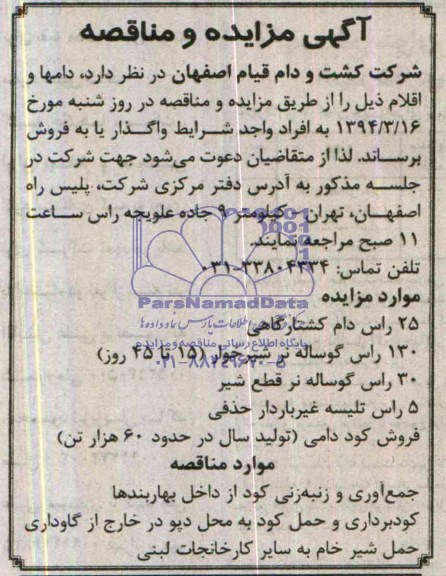 آگهی مزایده و مناقصه
شرکت کشت و دام قیام اصفهان در نظر دارد، دامها و
اقلام ذیل را از طریق مزایده و مناقصه در روز شنبه مورخ
۱۳۹۴/۳/۱۶ به افراد واجد شرایط واگذار یا به فروش
برساند. لذا از متقاضیان دعوت می‌شود جهت شرکت در
جلسه مذکور به آدرس دفتر مرکزی شرکت، پلیس راه
اصفهان، تهران - کیلومتر ۹ جاده علویجه راس ساعت
۱۱ صبح مراجعه نمایند.
تلفن تماس: ۳۳۸۰۴۳۳۴-۰۳۱
ParsNamadData
موارد مزایده
۲۵ راس دام کشتارگاهی
پایگاه اطلاع رسانی مناقصه و مزایده
۱۳۰ راس گوساله نر شیرخوار (۱۵ تا ۴۵ روز)
۰۲۱-۸۸۳۴۹۶۷۰-۵
۳۰ راس گوساله نر قطع شیر
۵ راس تلیسه غیرباردار حذفی
فروش کود دامی (تولید سال در حدود ۶۰ هزار تن)
موارد مناقصه
جمع‌آوری و زنبه‌زنی کود از داخل بهاربندها
کودبرداری و حمل کود به محل دپو در خارج از گاوداری
حمل شیر خام به سایر کارخانجات لبنی